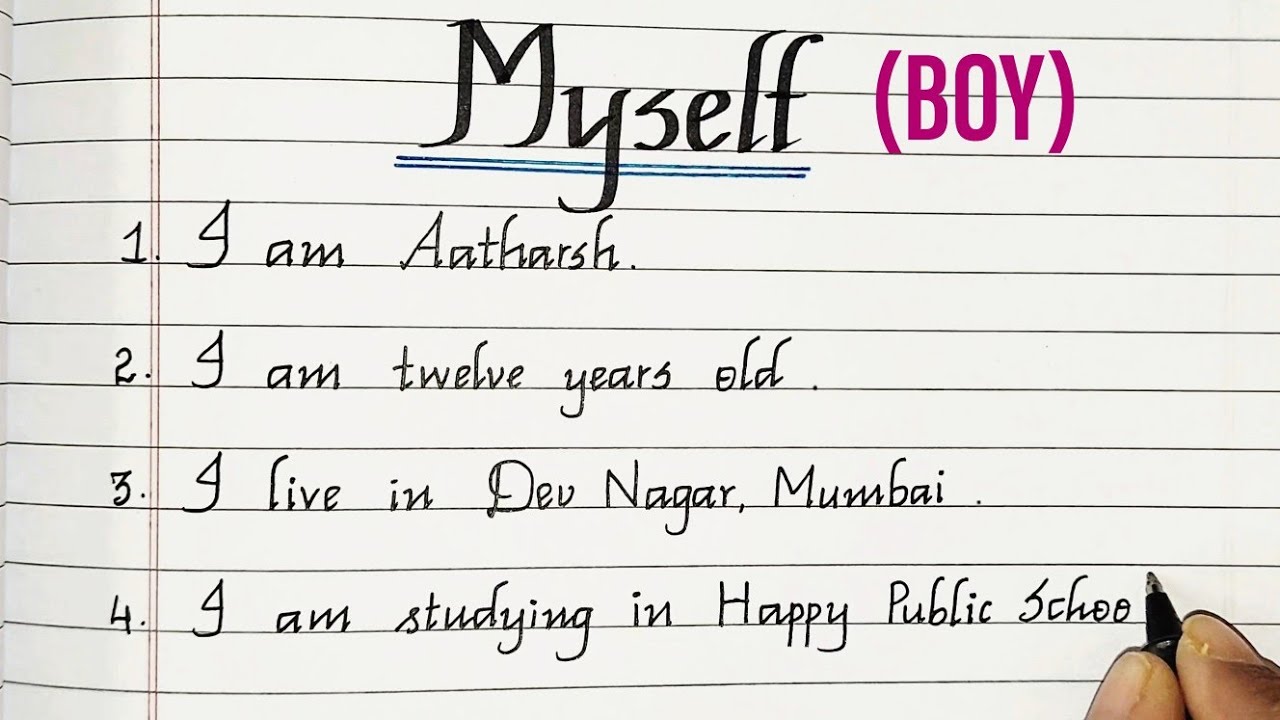 Myself (BOY)
1. I am Aatharsh.
2. I am twelve years old.
3. I live in Dev Nagar, Mumbai.
4. I am studying in Happy Public Schoo